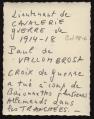 Lieutenant de
CAVALERIE
GUERRE de
1914-18
Paul de
VALLOMBROSA
CROIX de Guerre
a tué à coup de
Baïonnette plusieurs
Allemands dans
les TRANCHÉES.